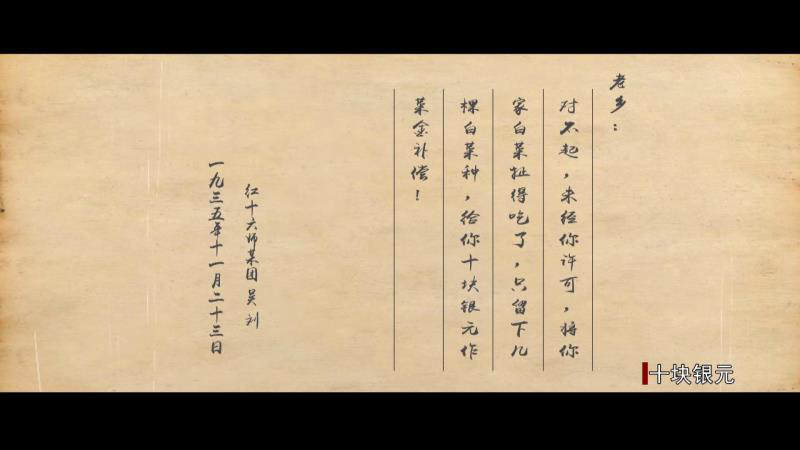 老乡：
对不起，未经你许可，将你
家白菜扯得吃了，只留下几
棵白菜种，给你十块银元作
菜金补偿！
红十六师某团 吴 刘
一九三五年十一月二十三日
十块银元